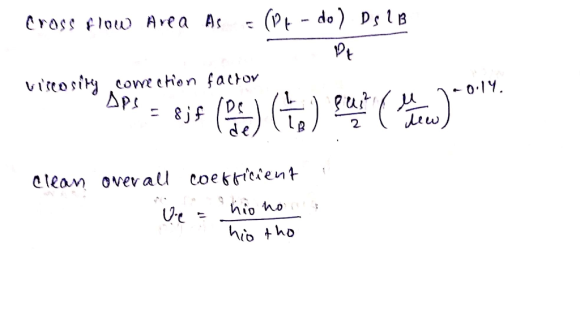 Cross flow Area As = (Pt - do) Ds lB / Pt
viscosity correction factor
ΔPs = 8jf (Ds/de) (L/lB) ρui²/2 (μ/μw)^-0.14.
clean overall coefficient
Uc = hio ho / hio + ho